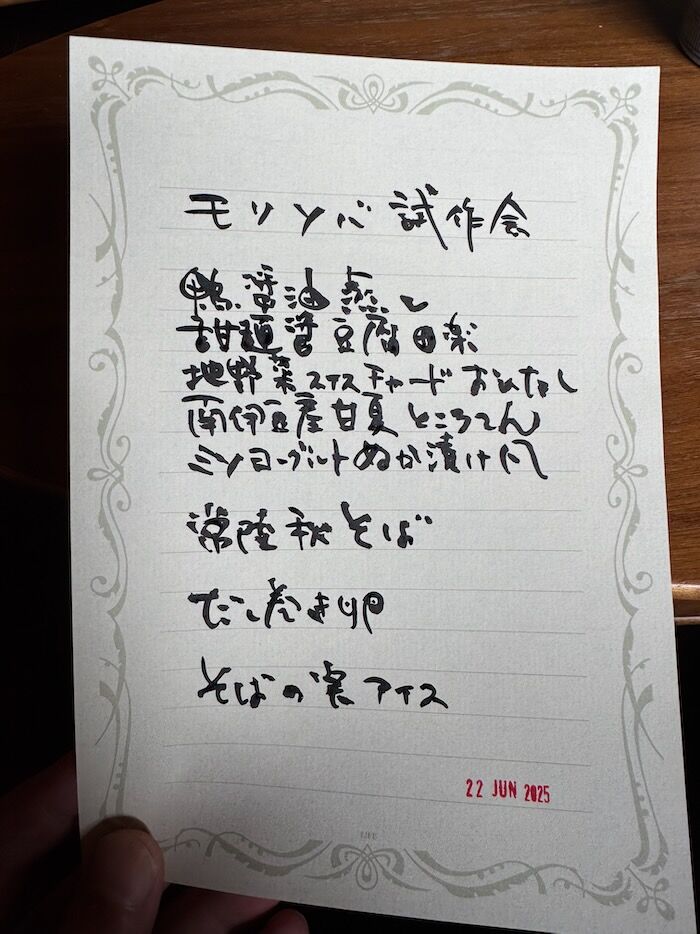 モリソバ 試作会
鴨醤油蒸し
甜麺醤豆腐田楽
地野菜スイスチャードおひたし
南伊豆産甘夏ところてん
ミソヨーグルトぬか漬け
常陸秋そば
だし巻き卵
そばの実アイス
22 JUN 2025
LIFE